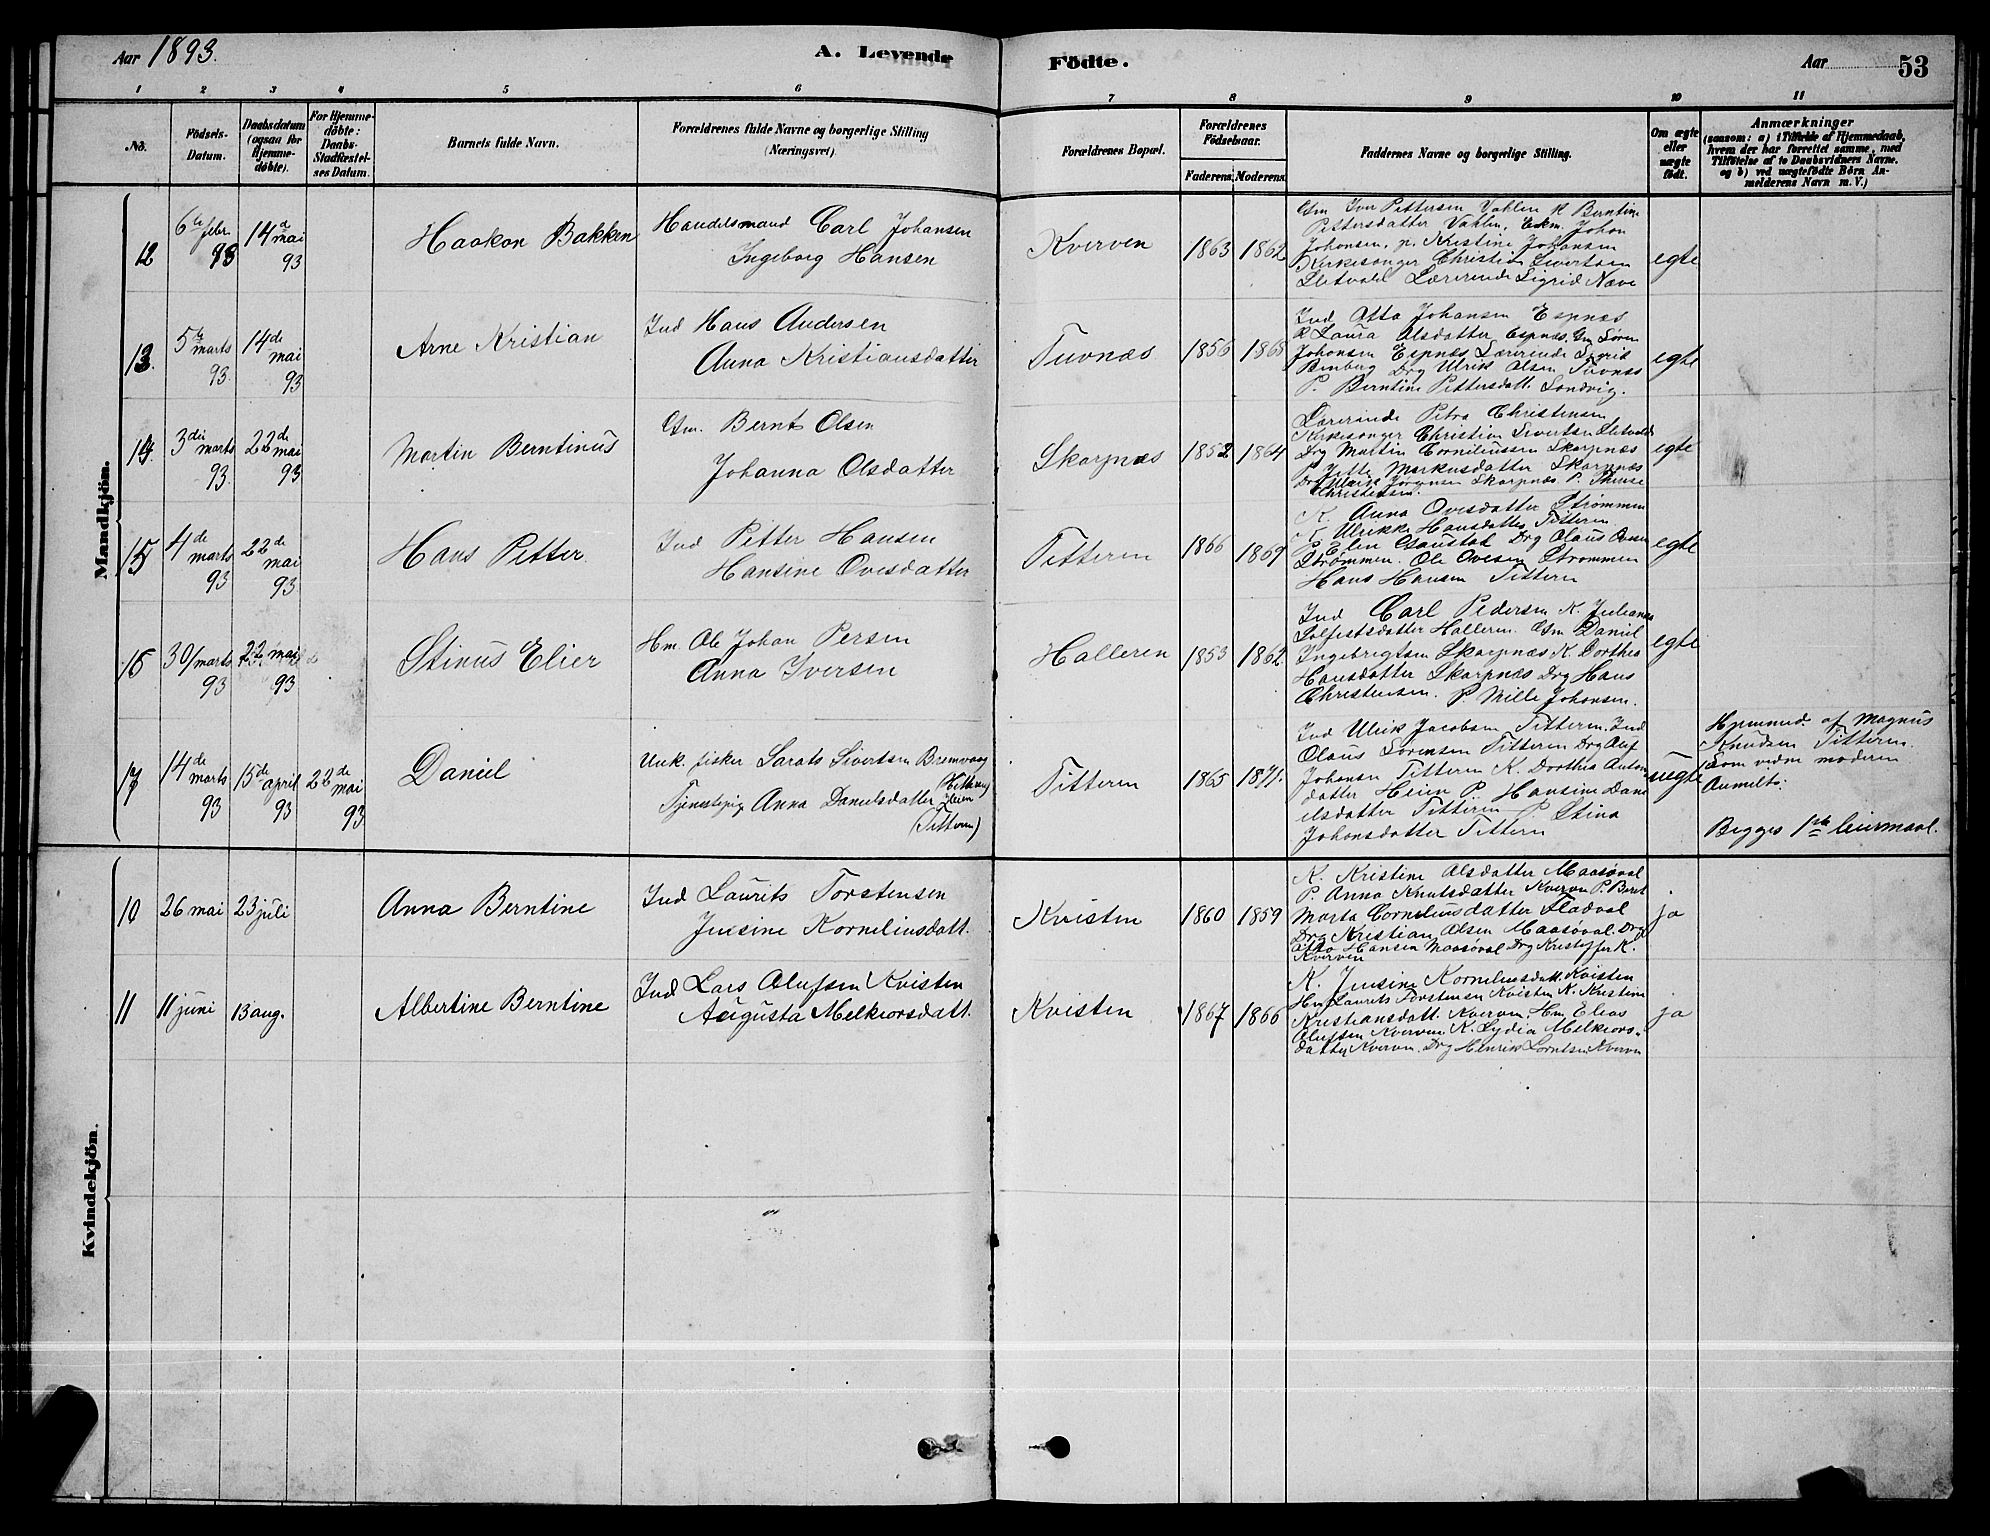 Aar 1893.
A. Levende
Födte.
Aar
53
1 2 3 4 5 6 7 8 9 10 11
No.
Födsels-
Datum.
Daabsdatum
(ogsaa for
Hjemme-
döbte).
For Hjemme-
döbte:
Daabs-
Stadfæstel-
ses Datum.
Barnets fulde Navn.
Forældrenes fulde Navne og borgerlige Stilling
(Næringsvei).
Forældrenes Bopæl.
Forældrenes
Födselsaar.
Faderens. Moderens.
Faddernes Navne og borgerlige Stilling.
Om ægte
eller
uægte
födt.
Anmærkninger
(saasom: a) i Tilfælde af Hjemmedaab,
hvem der har forrettet samme, med
Tilföielse af to Daabsvidners Navne.
og b) ved uægtefödte Börn An-
melderens Navn m. V.)
Mandkjön.
12
6te febr.
93
14de mai
93
Haakon Bakken
Handelsmand Carl Johansen
Ingeborg Hansen
Kverven
1863 1862
Gm Iver Pettersen Vahlen K Berntine
Pettersdatter Vahlen, Ekm. Johan
Johansen, p. Kristine Johansen
Kirkesanger Christian Sivertsen
Sletvold Lærerinde Sigrid Næve
egte
13.
5te marts
93.
14de mai
93
Arne Kristian
Ind Hans Andersen
Anna Kristiansdatter
Tuvnæs
1856 1868
Ind Otto Johansen Espnæs
K Laura Olsdatter Espnæs. Gm Sören
Johansen Espnæs Lærerinde Sigrid
Drg Ulrik Olsen Tuvnæs
P. Berntine Pettersdatt. Sandvig.
egte
14.
3die marts
93.
22de mai
93
Martin Berntinus
Gm. Bernt Olsen
Johanna Olsdatter
Skarpnæs
1852 1864
Lærerinde Petra Christensen
Kirkesanger Christian Sivertsen Sletvold
Drg Martin Corneliussen Skarpnæs
P. Jette Markusdatter Skarpnæs
Drg Ulrik Jörgensen Skarpnæs P.
Christensen.
egte
15
4de marts
93
22de mai
93
Hans Petter.
Ind Petter Hansen
Hansine Ovesdatter
Titteren
1866 1869
K. Anna Ovesdatter Strømmen
K Ulrikke Hansdatter Titteren
P Elen Gaustad Drg Olaus Ovesen
Strømmen. Ole Ovesen Strømmen
Hans Hansen Titteren
egte
16
30/marts
93
22 mai
93
Stinus Elier
Hm. Ole Johan Persen
Anna Iversen
Halleren
1853 1862.
Ind Carl Pedersen K. Juliana
Halleren. Gm Daniel
Ingebrigtsen Skarpnæs K. Dorthea
Hansdatter Skarpnæs Drg Hans
Christensen. P. Mille Johansen.
egte
17
14de marts
93
15de april
93
22de mai
93
Daniel
Unk. fisker Sivertsen Bremvaag
(Hitteren)
Tjenestepig Anna Danielsdatter Heim
(Titteren)
Titteren
1865 1871.
Ind Ulrik Jacobsen Titteren. Ind
Olaus Sörensen Titteren Drg Oluf
Johansen Titteren K. Dorthea Anton
datter Heim P. Hansine Dani
elsdatter Titteren P. Stina
Johansdatter Titteren
uegte
Hjemmed af Magnus
Knudsen Titteren.
som vedm moderen
Anmeldt:
Begges 1ste leiermaal.
Kvindekjön.
10
26 mai
23 juli
Anna Berntine
Ind Laurits Torstensen
Jensine Korneliusdatt.
Kvisten
1860 1859
K. Kristine Olsdatter Maasöval
P. Anna Knutsdatter Kverven P. Beret
Marta Corneliusdatter Fladval
Drg Kristian Olsen Maasöval. Drg
Otto Hansen Maasöval Drg Kristoffer K.
Kverven
ja
11
11 juni
13 aug.
Albertine Berntine
Ind Lars Olufsen Kvisten
Augusta Melkiorsdatt.
Kvisten
1867 1866
K. Jensine Korneliusdatt. Kvisten
Hm Laurits Torstensen Kvisten K. Kristine
Kristiansdatt. Kverven Hm Elias
Olufsen Kverven K. Lydia Melkiors-
datter Kverven. Drg Henrik Lorntsen Kverven
ja